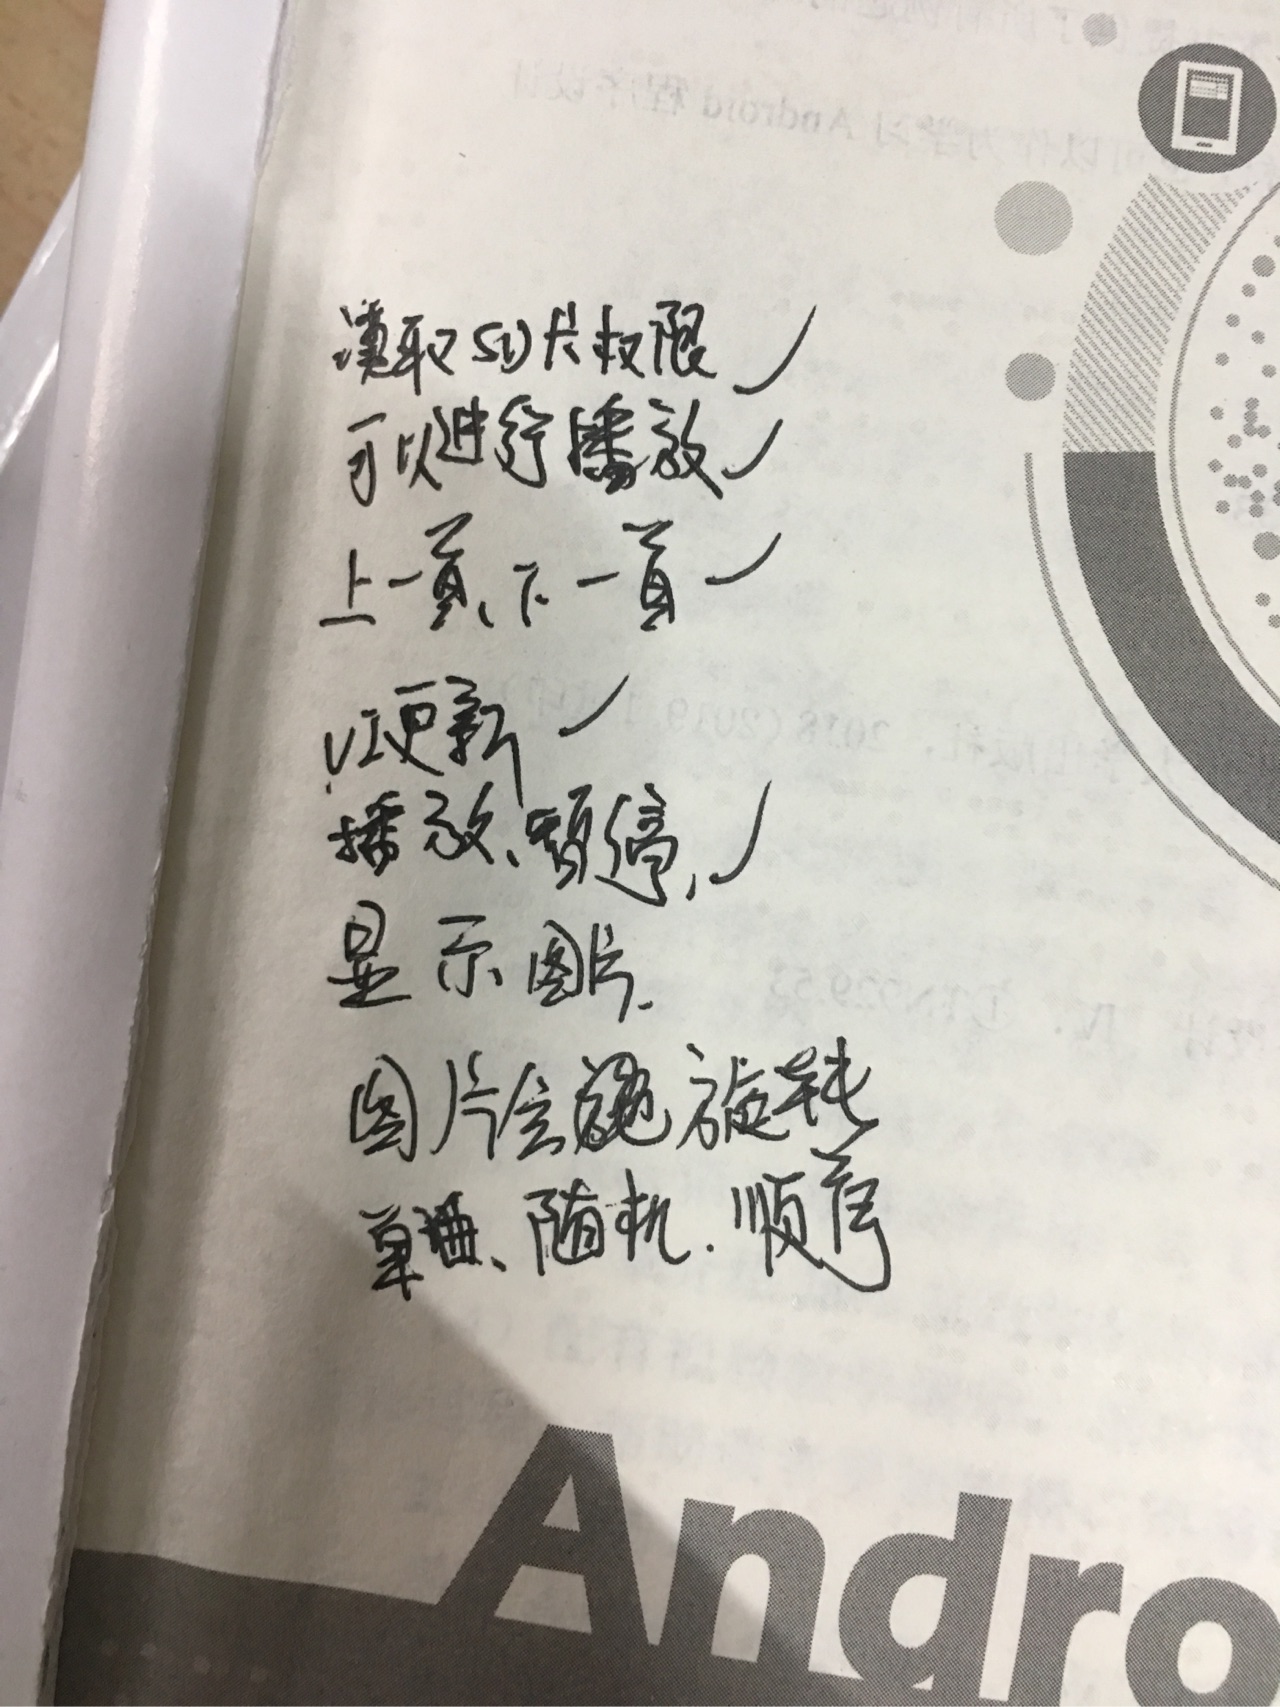 读取SD卡权限
可以进行播放
上一首、下一首
UI更新
播放、暂停,
显示图片.
图片会 旋转
单曲、随机.顺序
Andro